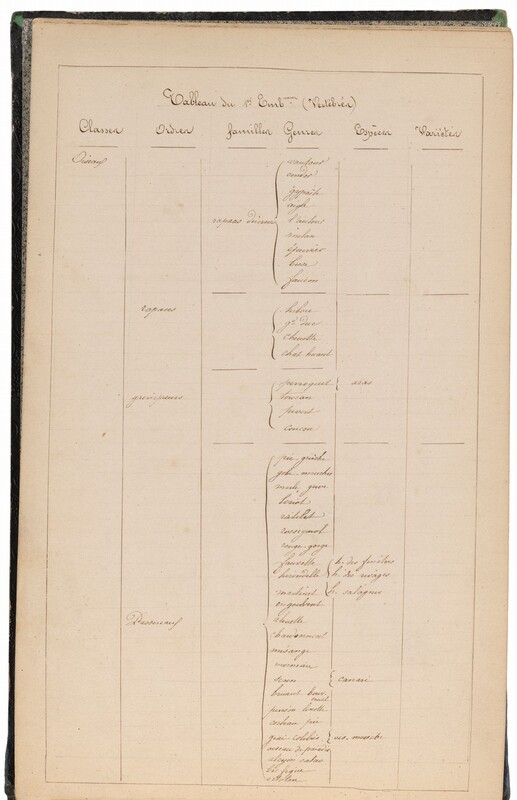 Tableau du 1er Emb.ment (Vertébrés)
Classes Ordres familles Genres Espèces Variétés
Oiseaux
vautour
condor
gypaète
aigle
rapaces diurnes
milan
épervier
buse
faucon
rapaces
hibou
gd duc
chouette
chat huant
perroquet { aras
toucan
grimpeurs
pivert
coucou
pie-grièche
gobe-mouches
merle grive
loriot
roitelet
rossignol
rouge-gorge
fauvette
hirondelle { h. des fenêtres
h. des rivages
martinet h. salangues
engoulvent
Passereaux
alouette
chardonneret
mésange
moineau
serin { canari
bruant bouvreuil
pinson linotte
corbeau pie
geai colibris { ois. mouche
oiseau de paradis